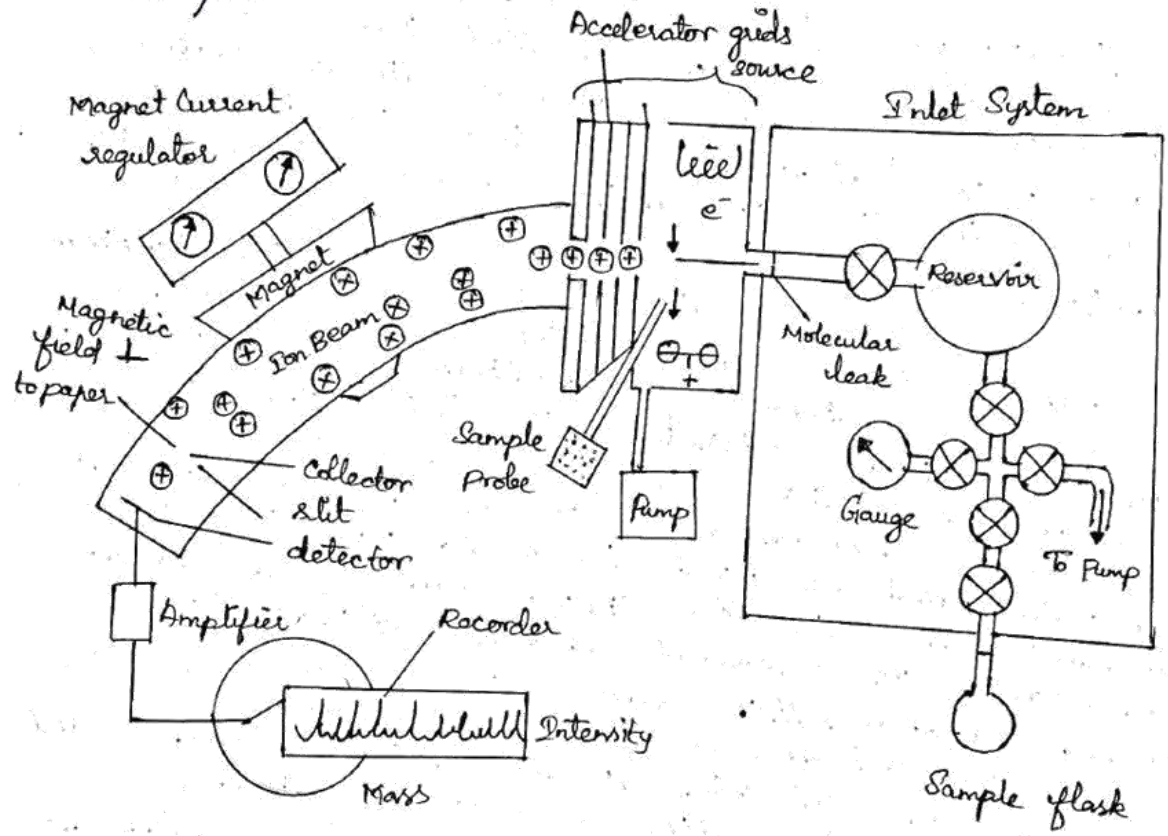 Accelerator grids
source
Inlet System
Magnet Current
regulator
e⁻
Reservoir
Magnet
Ion Beam
Magnetic
field ⊥
to paper
Molecular
leak
Sample
Probe
Collector
slit
detector
Pump
Gauge
To Pump
Amplifier
Recorder
Intensity
Mass
Sample flask